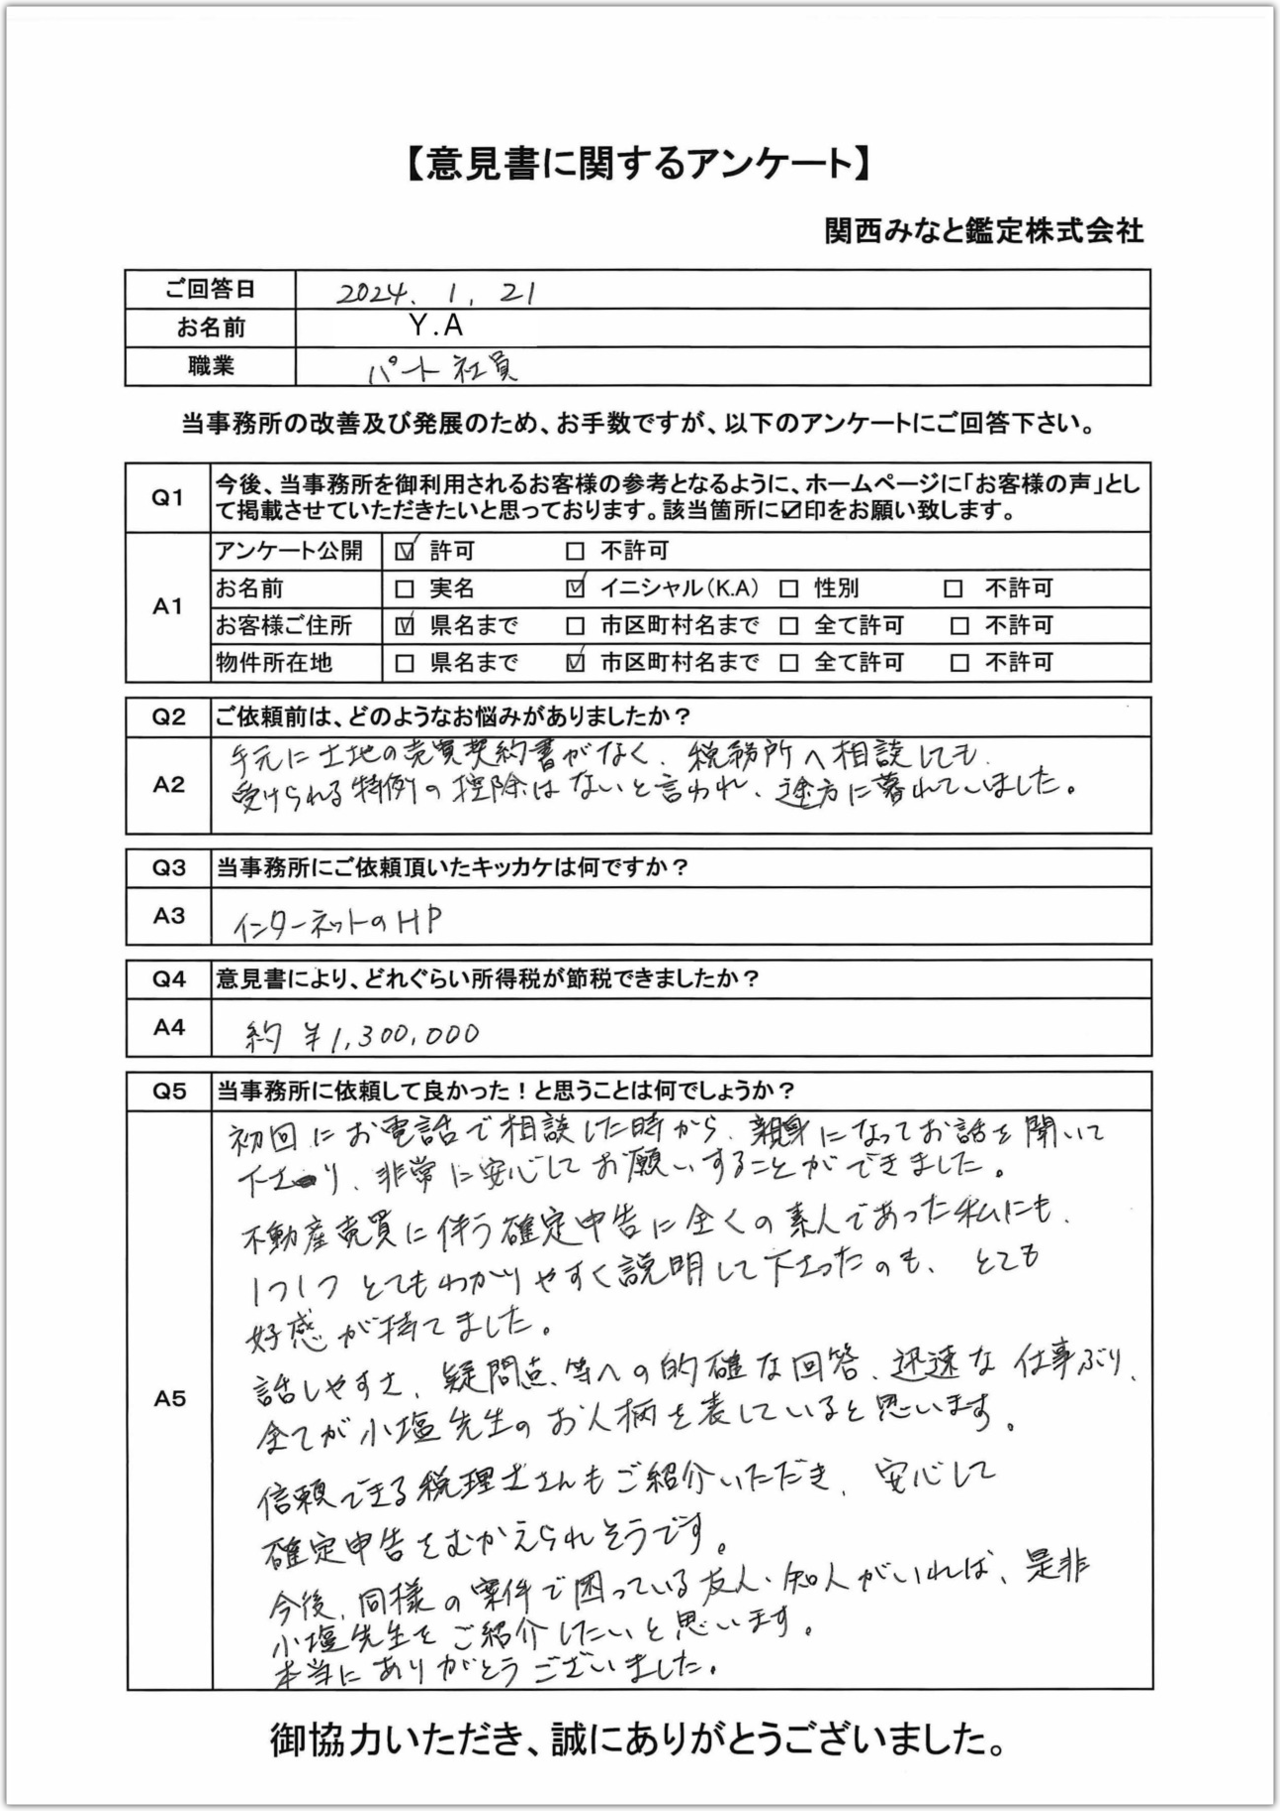 【意見書に関するアンケート】
関西みなと鑑定株式会社
ご回答日 2024. 1. 21
お名前 Y.A
職業 パート社員
当事務所の改善及び発展のため、お手数ですが、以下のアンケートにご回答下さい。
Q1 今後、当事務所を御利用されるお客様の参考となるように、ホームページに「お客様の声」とし
て掲載させていただきたいと思っております。該当箇所に☑印をお願い致します。
A1
アンケート公開 ☑ 許可 □ 不許可
お名前 □ 実名 ☑ イニシャル(K.A) □ 性別 □ 不許可
お客様ご住所 ☑ 県名まで □ 市区町村名まで □ 全て許可 □ 不許可
物件所在地 □ 県名まで ☑ 市区町村名まで □ 全て許可 □ 不許可
Q2 ご依頼前は、どのようなお悩みがありましたか？
A2
手元に土地の売買契約書がなく、税務所へ相談しても、
受けられる特例の控除はないと言われ、途方に暮れていました。
Q3 当事務所にご依頼頂いたキッカケは何ですか？
A3 インターネットのHP
Q4 意見書により、どれぐらい所得税が節税できましたか？
A4 約 ¥1,300,000
Q5 当事務所に依頼して良かった！と思うことは何でしょうか？
A5
初回にお電話で相談した時から、親身になってお話を聞いて
下さり、非常に安心してお願いすることができました。
不動産売買に伴う確定申告に全くの素人であった私にも、
1つ1つとてもわかりやすく説明して下さったのも、とても
好感が持てました。
話しやすさ、疑問点、等への的確な回答、迅速な仕事ぶり、
全てが小塩先生のお人柄を表していると思います。
信頼できる税理士さんもご紹介いただき、安心して
確定申告をむかえられそうです。
今後、同様の案件で困っている友人・知人がいれば、是非
小塩先生をご紹介したいと思います。
本当にありがとうございました。
御協力いただき、誠にありがとうございました。